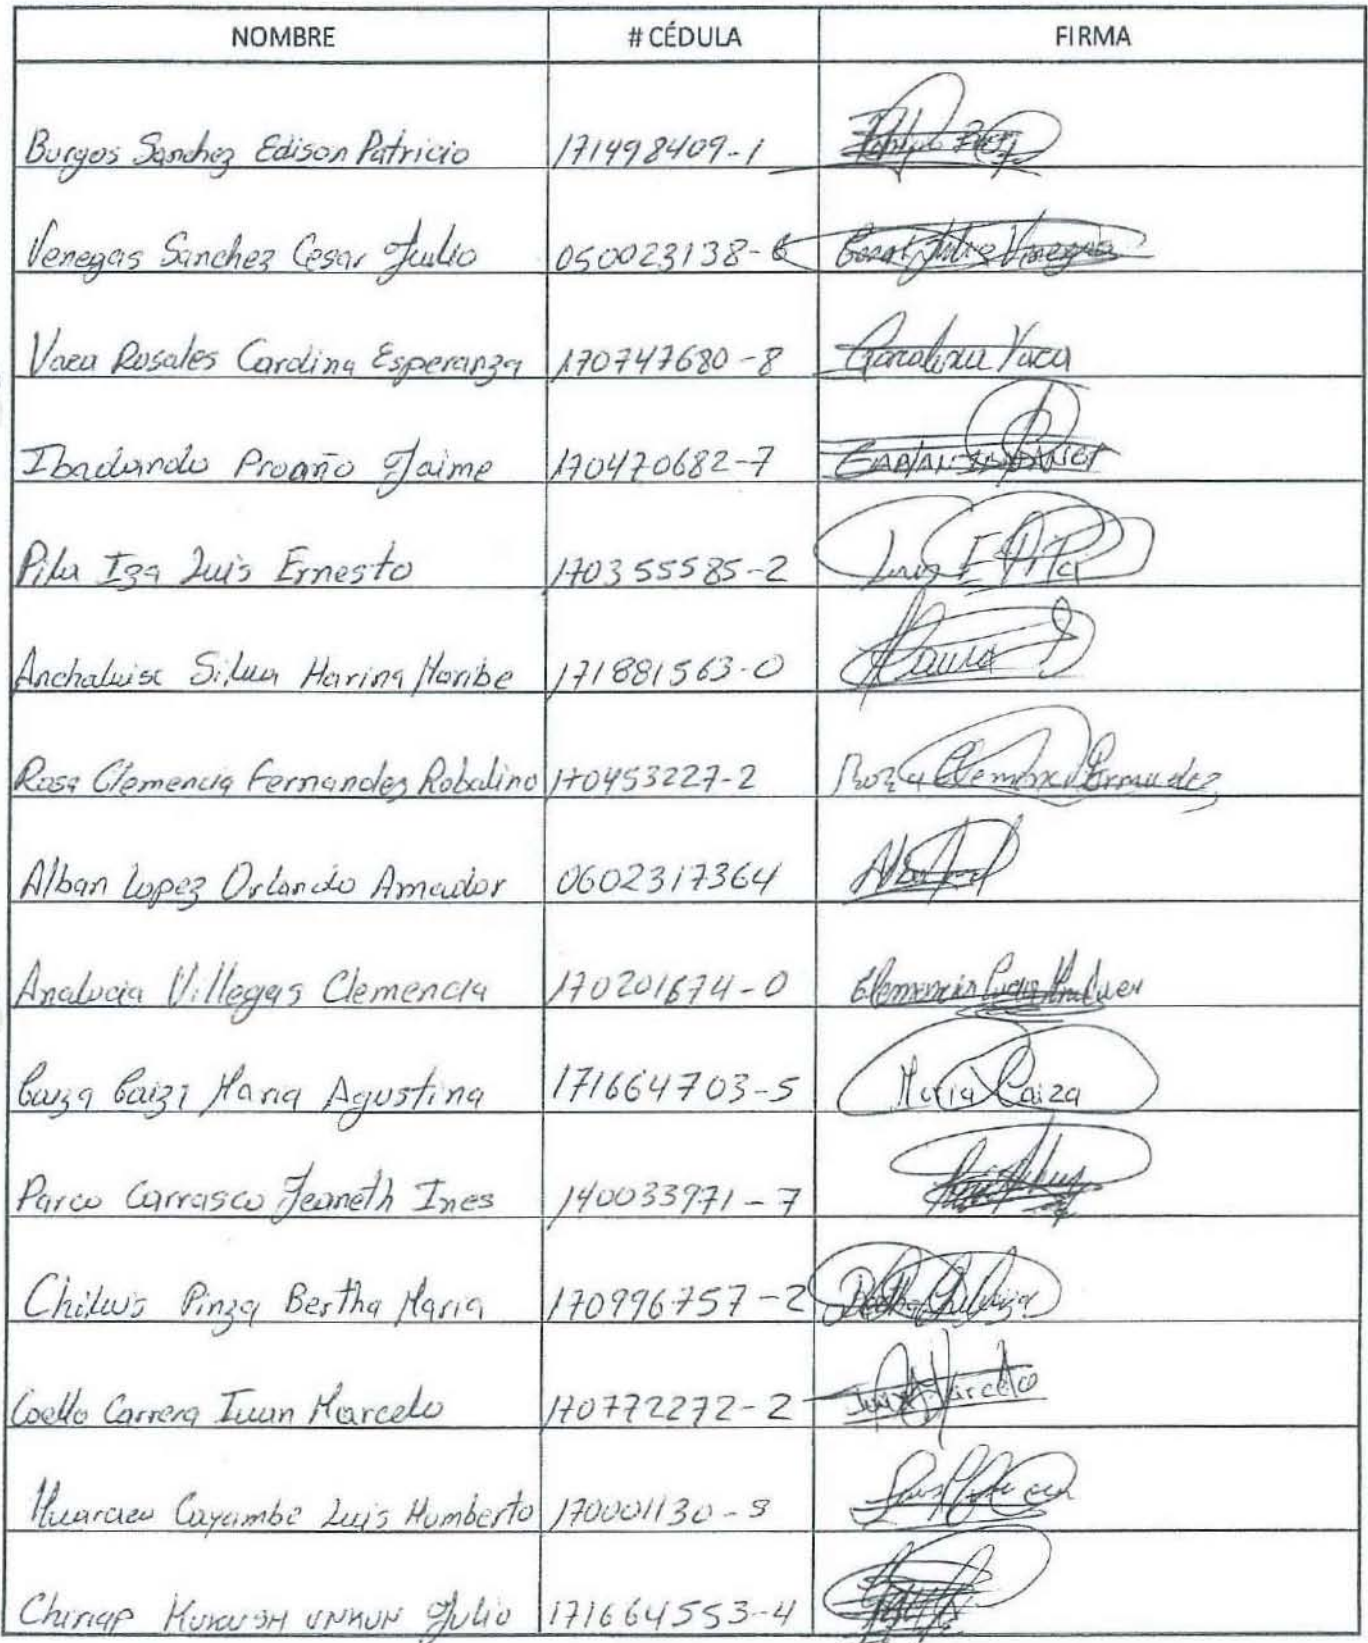 NOMBRE # CÉDULA FIRMA
Burgos Sanchez Edison Patricio 171498409-1
Venegas Sanchez Cesar Julio 050023138-6 Cesar Julio Venegas
Vaca Rosales Carolina Esperanza 170747680-8 Carolina Vaca
Proaño Jaime 170470682-7
Pila Iza Luis Ernesto 170355585-2 Luis E
Silva Marina Maribe 171881563-0
Rosa Clemencia Fernandez Robalino 170453227-2 Roza Clemencia Fernandez
Alban Lopez Orlando Amador 0602317364
Analucia Villegas Clemencia 170201674-0 Clemencia
Caiza Caiza Maria Agustina 171664703-5 Maria Caiza
Parco Carrasco Jeaneth Ines 140033971-7
Pinza Bertha Maria 170996757-2
Coello Carrera Ivan Marcelo 170772272-2 Ivan Marcelo
Cayambe Luis Humberto 170001130-
Chiriap Julio 171664553-4